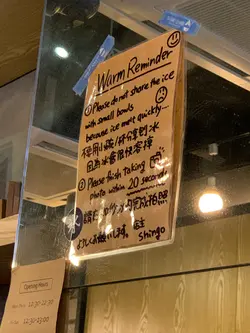 Warm Reminder
① Please do not share the ice
with small bowls
because ice melt quickly...
不使用小碗/杯分享刨冰
因為冰會很快溶掉
② Please finish taking
photo within 20 seconds
請於20秒內完成拍照
よろしくお願いします。
Shingo
Opening Hours